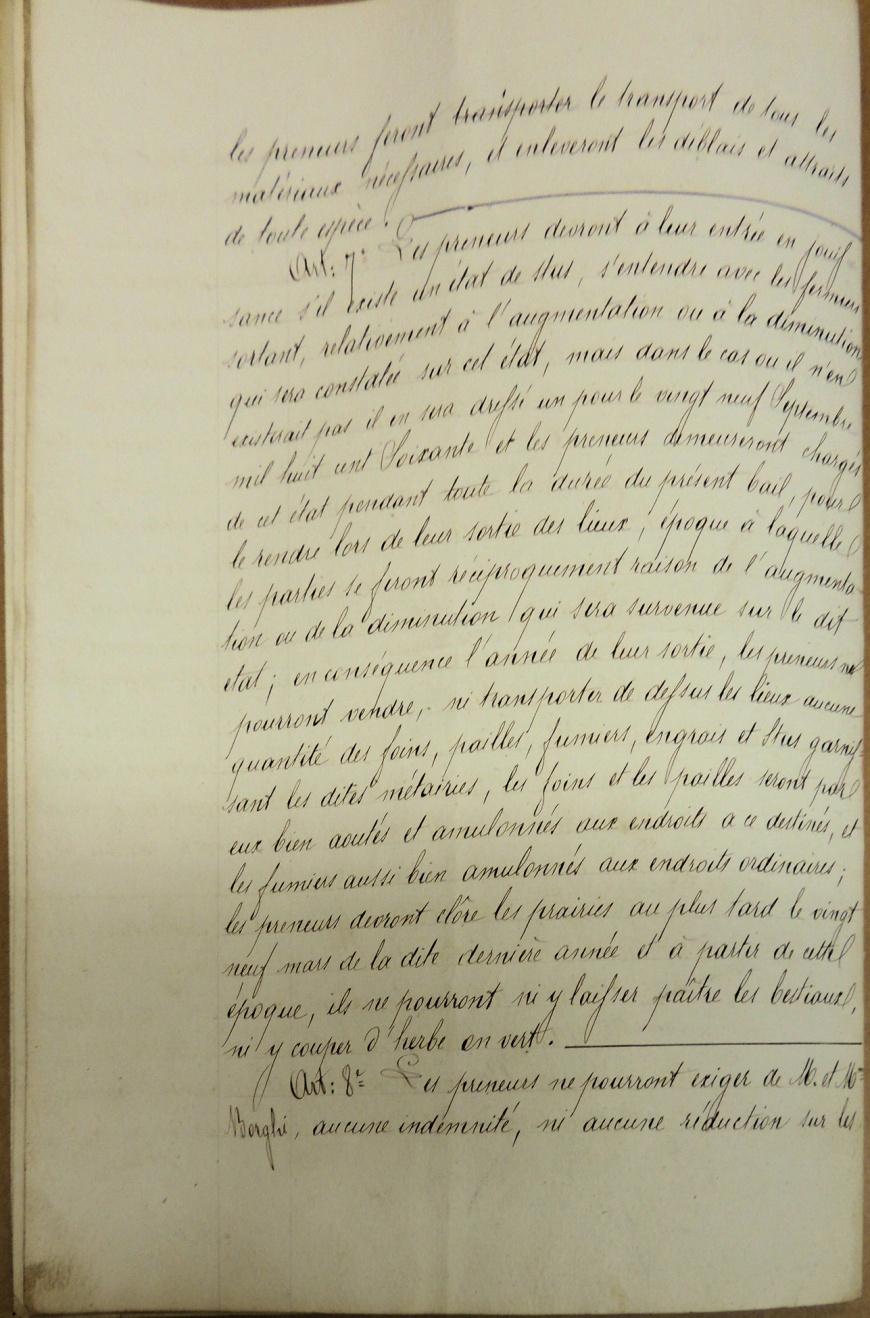 les preneurs feront transporter le transport de tous les
matériaux nécessaires, et enleveront les déblais et attraits
de toute espèce.
Art: 7e Les preneurs devront à leur entrée en jouis
sance s'il existe un état de stus, s'entendre avec les fermiers
sortant, relativement à l'augmentation ou à la diminution
qui sera constatée sur cet état, mais dans le cas ou il n'en
existerait pas il en sera dressé un pour le vingt neuf Septembre
mil huit cent Soixante et les preneurs demeureront chargés
de cet état pendant toute la durée du présent bail, pour
le rendre lors de leur sortie des lieux, époque à laquelle
les parties se feront réciproquement raison de l'augmenta
tion ou de la diminution qui sera survenue sur le dit
etat; en conséquence l'année de leur sortie, les preneurs ne
pourront vendre, ni transporter de dessus les lieux aucune
quantité des foins, pailles, fumiers, engrais et stus garnis-
sant les dites métairies, les foins et les pailles seront par
eux bien aoutés et amulonnés aux endroits a ce destinés, et
les fumiers aussi bien amulonnés aux endroits ordinaires;
les preneurs devront clôre les prairies au plus tard le vingt
neuf mars de la dite dernière année et à parter de cette
époque, ils ne pourront ni y laisser paître les bestiaux,
ni y couper d'herbe en vert.
Art: 8e Les preneurs ne pourront exiger de M. et Me
Borghi, aucune indemnité, ni aucune réduction sur les